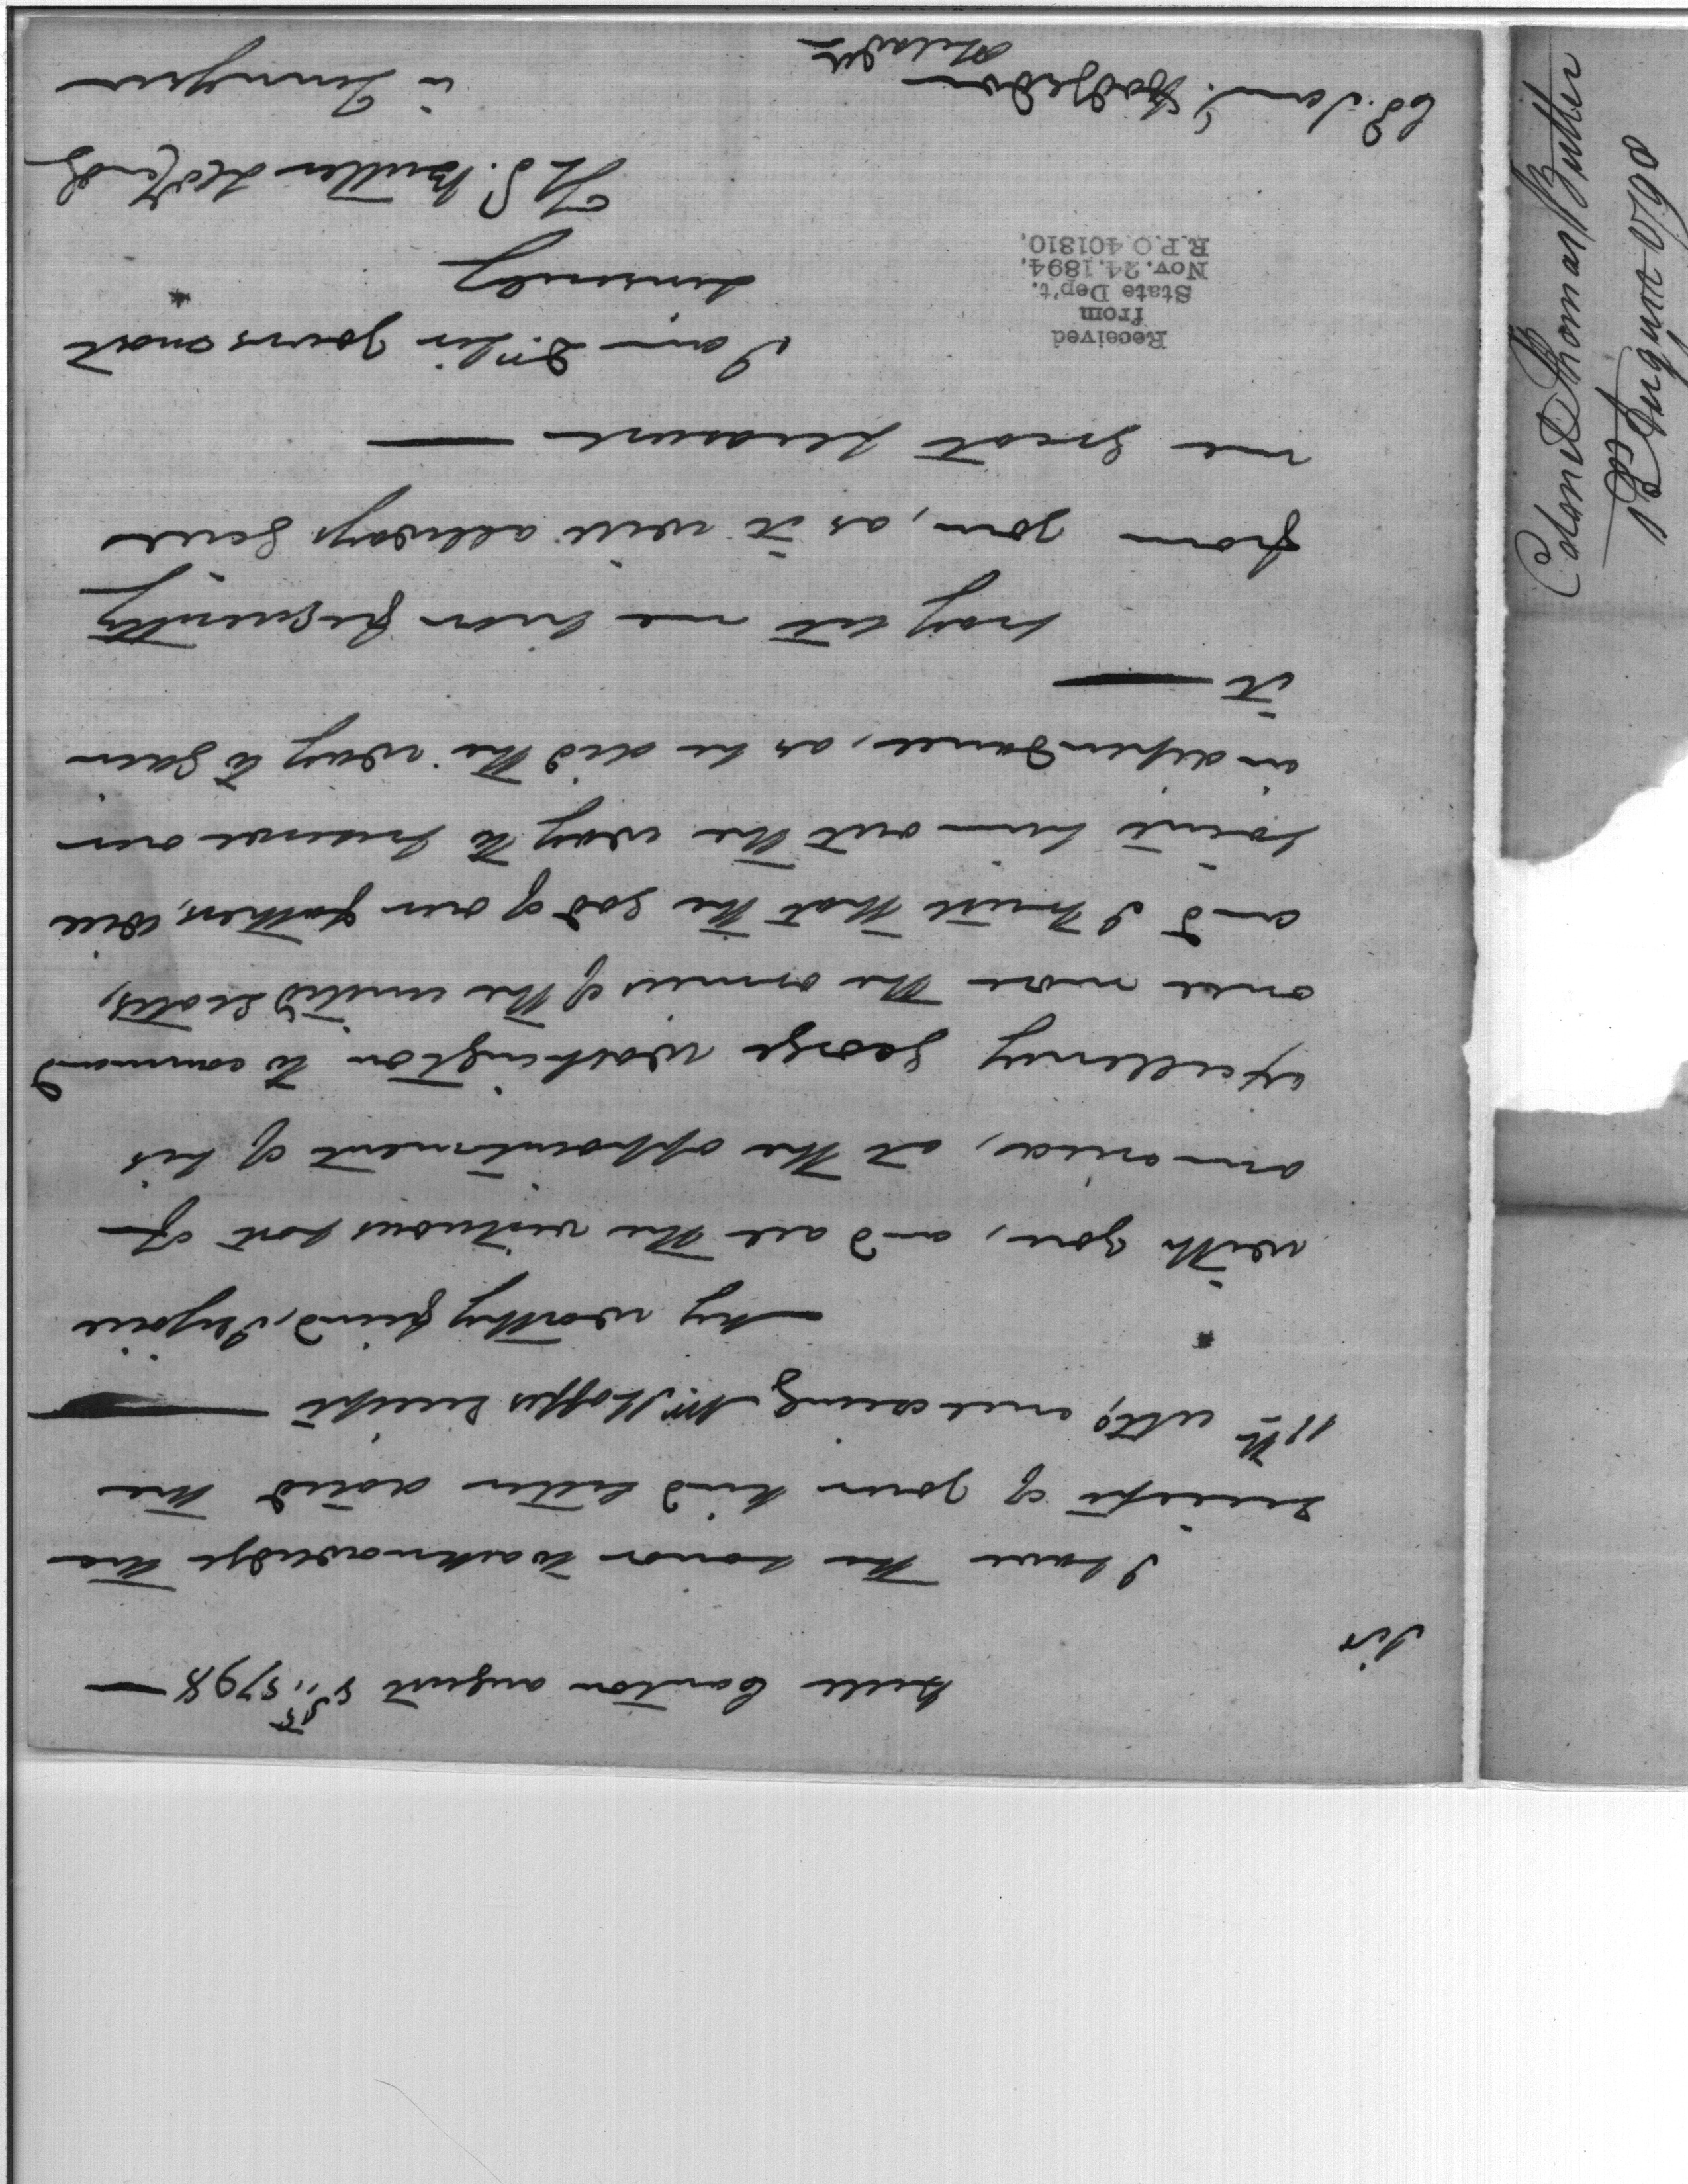 Camp Cantion august 1st, 1798 —
Sir
I have the honor to acknowledge the
receipt of your kind letter dated the
11th ulto, enclosing Mr. Hoffs receipt —
My worthy friend, I rejoice
with you, and all the virtuous part of
america, at the appointment of his
excellency George Washington to command
once more the armies of the united States,
and I trust that the god of our fathers, will
point him out the way to preserve our
independance, as he did the way to gain
it —
pray let me hear frequently
from you, as it will allways give
me great pleasure —
I am Dr. Sir yours most
sincerely
Received
from
State Dep't.
Nov. 24, 1894,
R.P.O. 401810.
Th S. Butler
in Tennessee
Col. Saml. Hodgsdon
Philada
Colonel Thomas Butler
1st August 1798